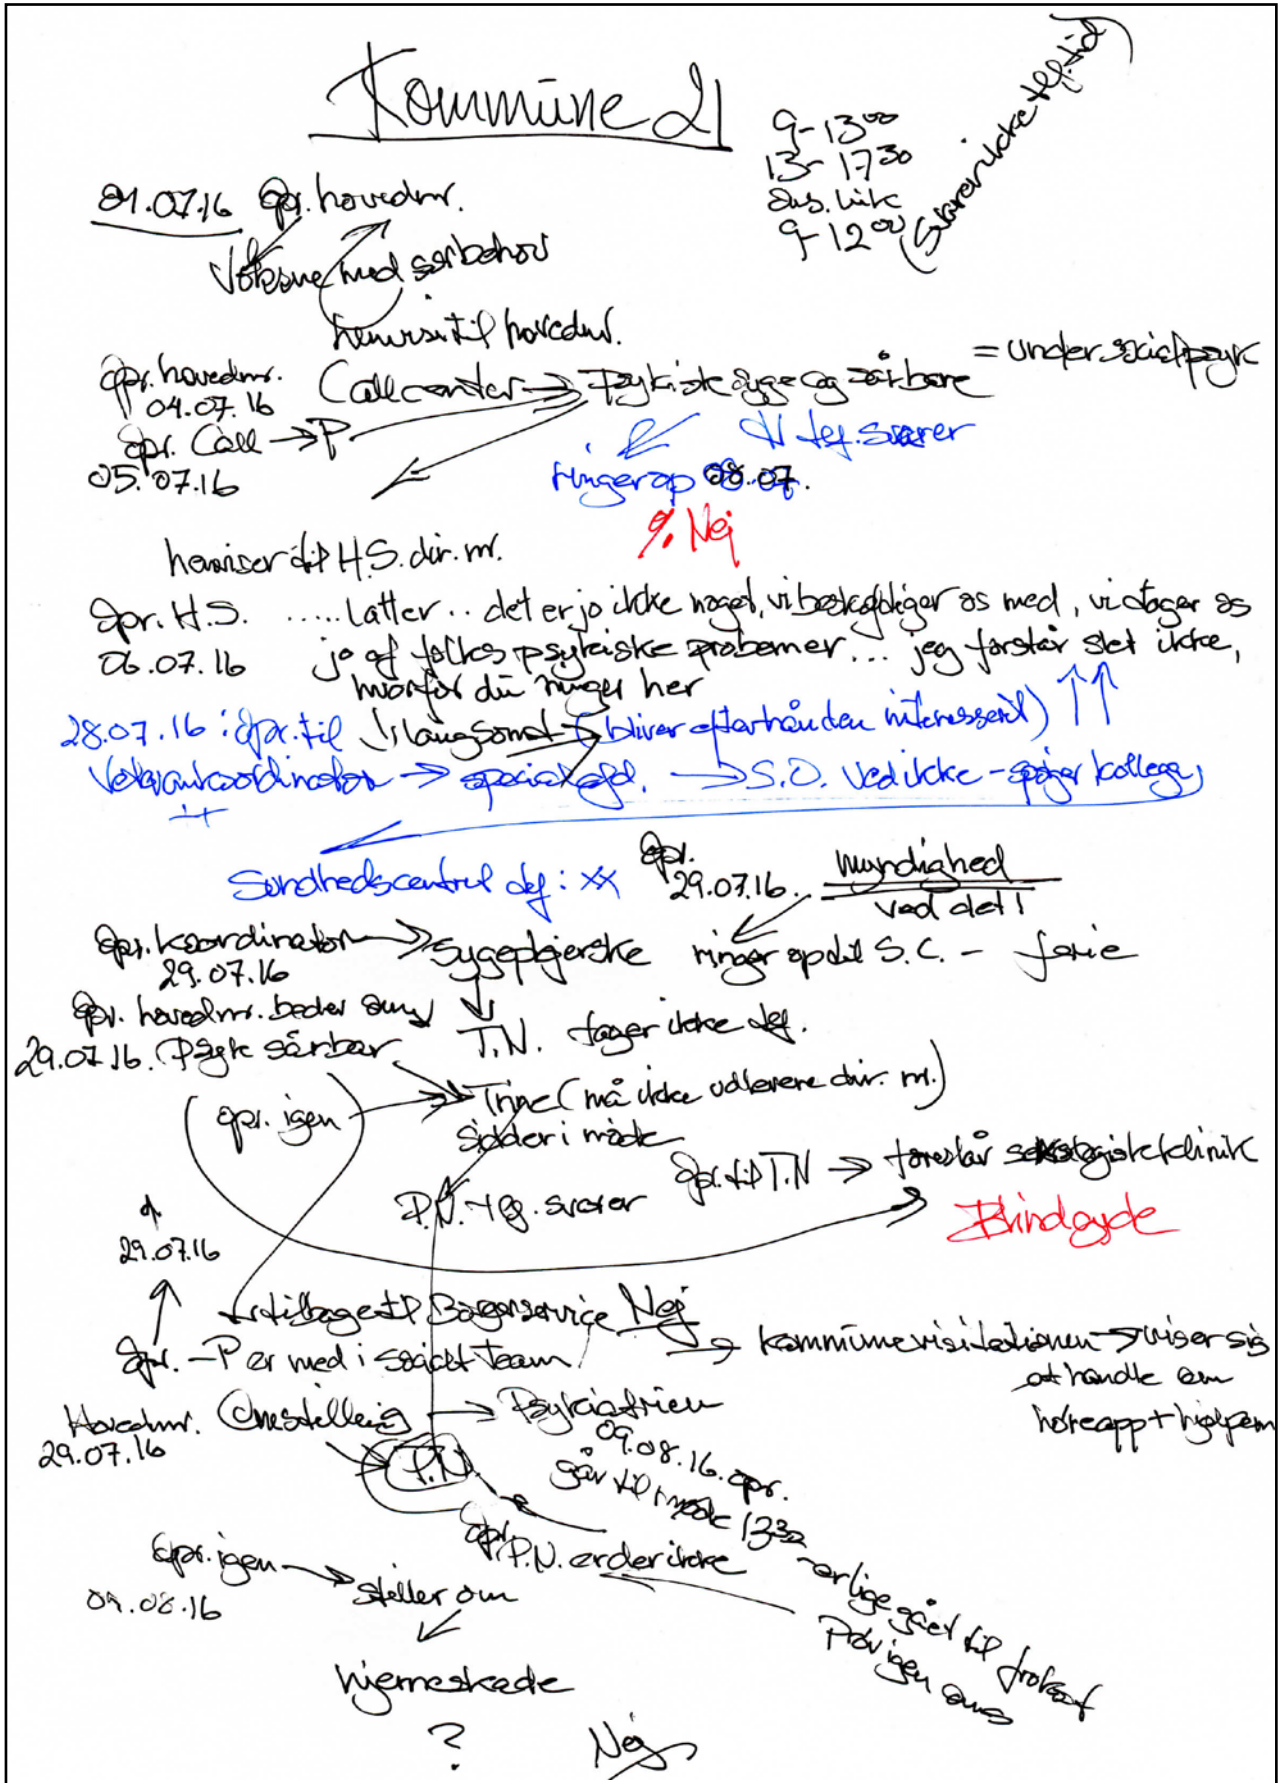 Kommune 21
9-13⁰⁰
13-17³⁰
Ons. lukk
9-12⁰⁰ (svarer ikke tlf. tid)
01.07.16 Opr. hovednr.
Voksne med særbehov
henviser til hovednr.
Opr. hovednr. Callcenter → Psykisk syge og sårbare = under socialpsyk
04.07.16
Opr. Call → P
05.07.16
tlf. svarer
ringer op 08.07.
% Nej
henviser til H.S. dir. nr.
Opr. H.S. ..... latter .. det er jo ikke noget, vi beskæftiger os med, vi tager os
06.07.16 jo af folks psykiske probemer ... jeg forstår slet ikke,
hvorfor du ringer her
28.07.16 : Opr. til langsomt (bliver efterhånden interesseret) ↑↑
Veterankoordinator → specialafd. → S.O. Ved ikke - spørger kollega
Sundhedscentret tlf : xx
Opr.
29.07.16. myndighed
ved det!
Opr. koordinator → Sygeplejerske ringer op til S.C. - ferie
29.07.16
Opr. hovednr. beder om
29.07.16. Psyk sårbar
T.N. tager ikke tlf.
(opr. igen → Trine (må ikke udlevere dir. nr.)
sidder i møde
Opr. til T.N → foreslår sexologisk klinik
P.N. tlf. svarer
Blindgyde
29.07.16
tilbage til Borgerservice Nej
Opr. - P er med i socialt Team → kommunevisitationen → viser sig
at handle om
høreapp + hjælpem
Hovednr. Omstilling → Psykiatrien
29.07.16
P.N.
09.08.16. opr.
går til møde 13³⁰
opr. P.N. er der ikke
- er lige gået til frokost
Prøv igen
Opr. igen → stiller om
09.08.16
hjerneskade
? Nej